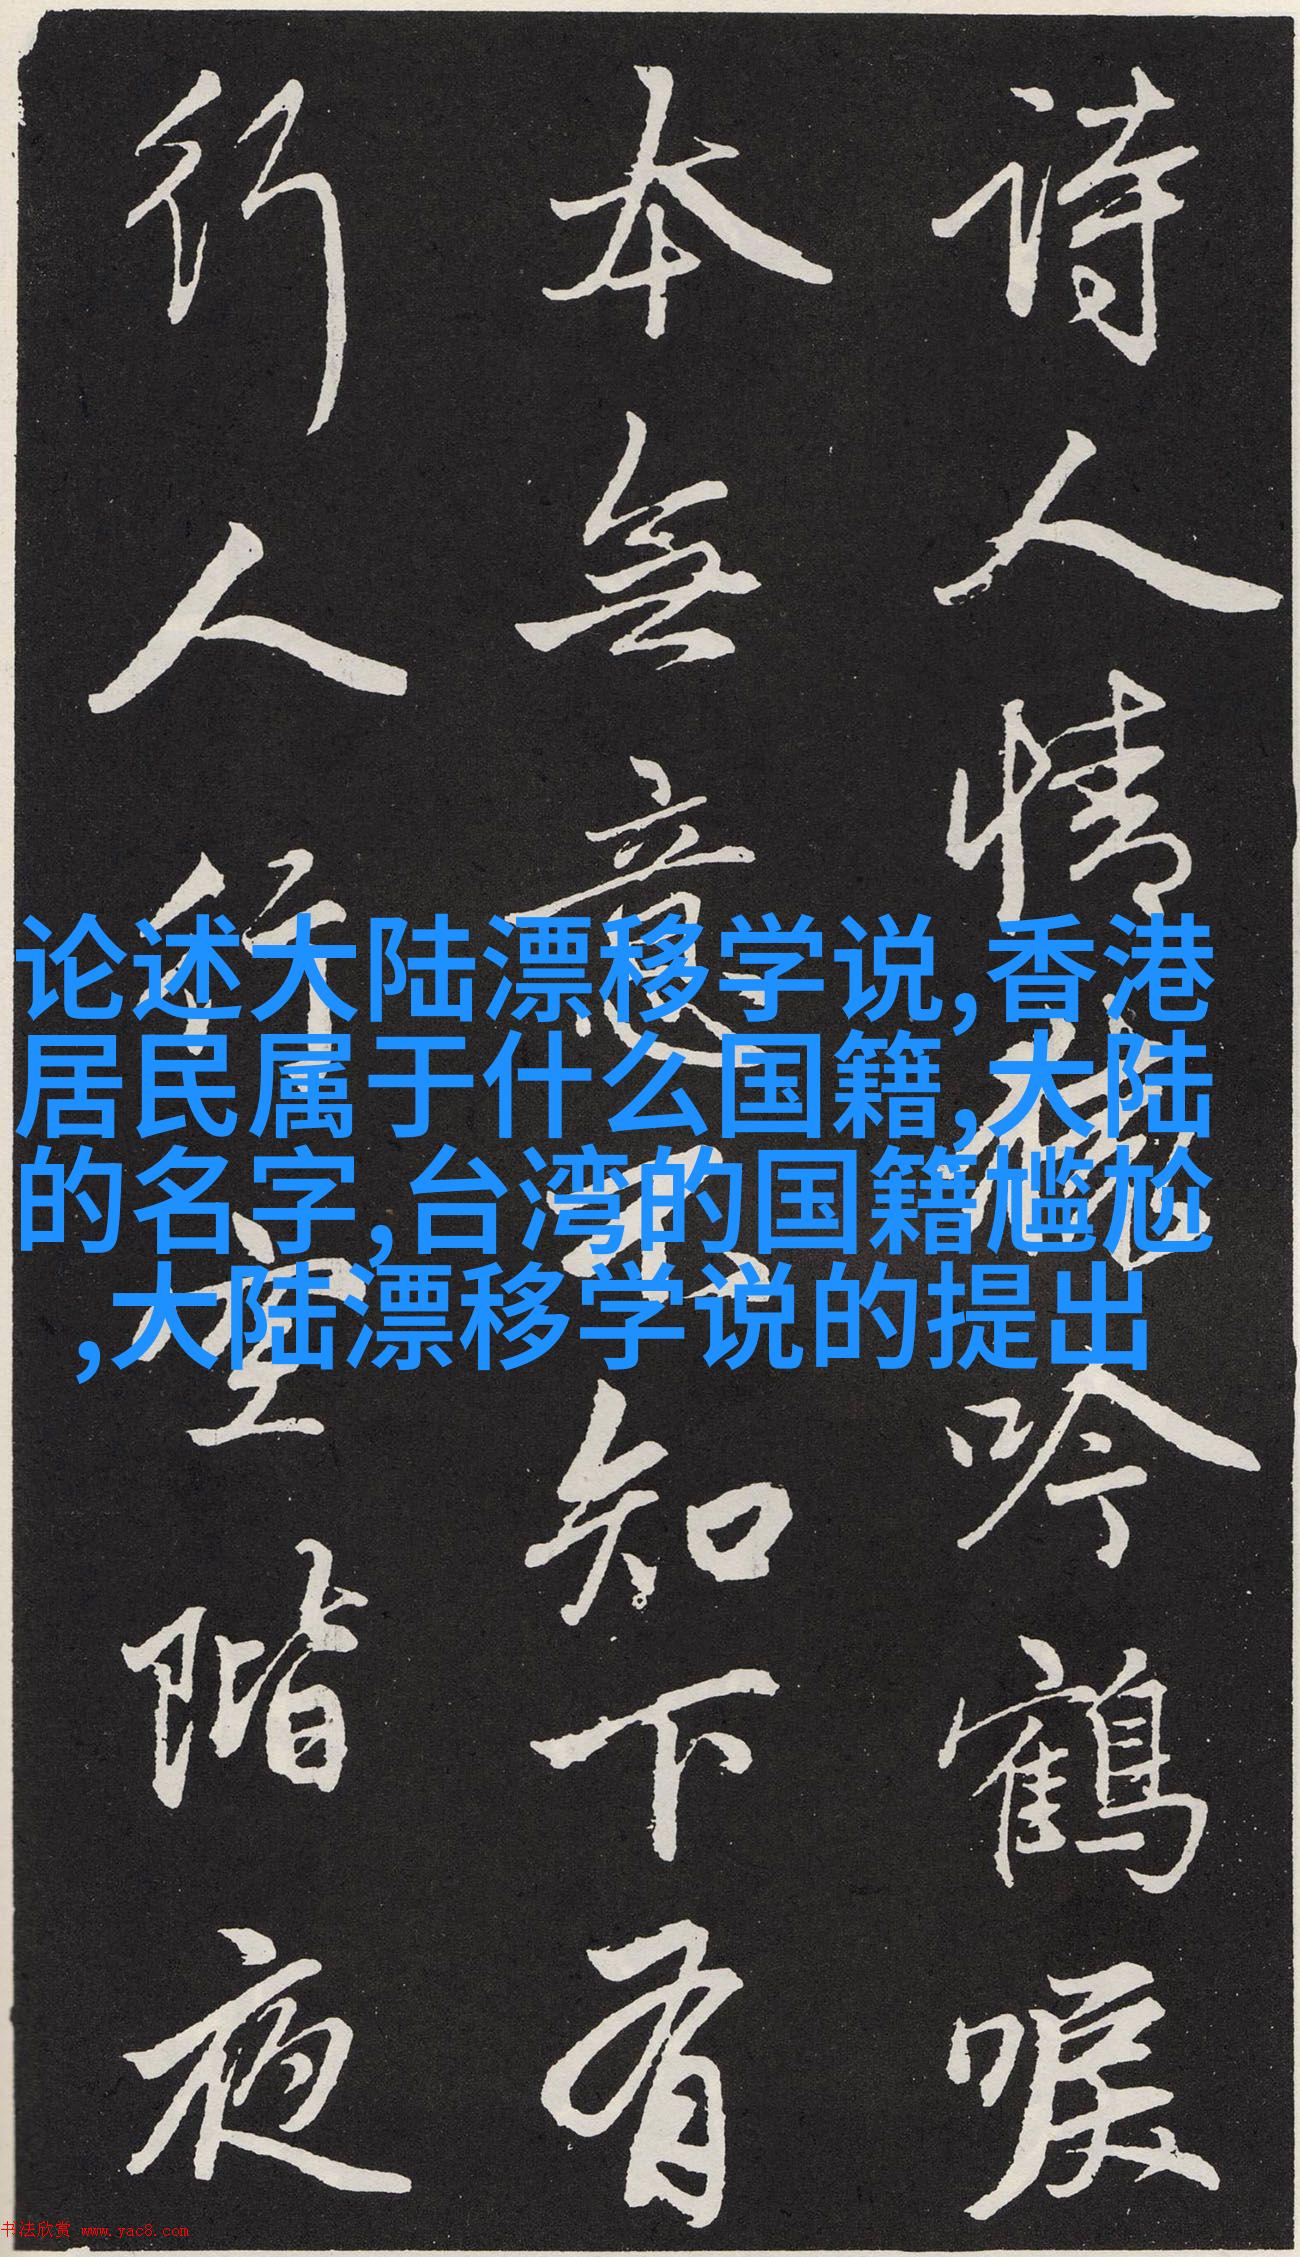 诗人情
吟鹤唳
本无意
知下有
行人行
空阶夜
论述大陆漂移学说,香港
居民属于什么国籍,大陆
的名字,台湾的国籍尴尬
,大陆漂移学说的提出
书法欣赏 www.yac8.com